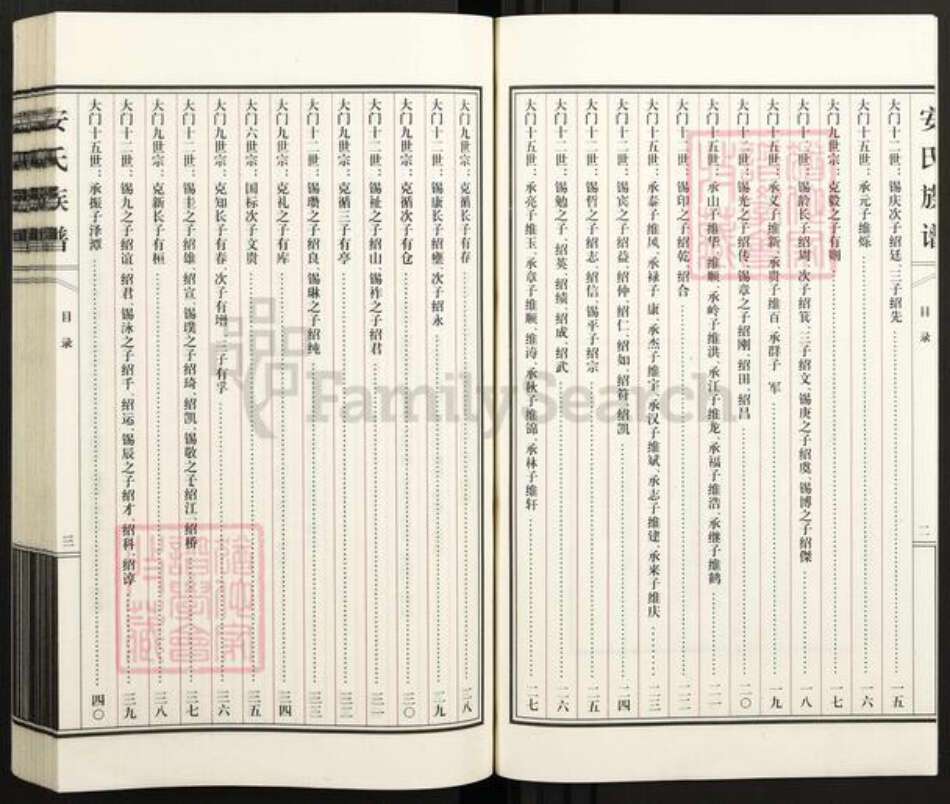 安氏族谱
目录
二
大门十二世：锡庆次子绍廷、三子绍先 一五
大门十五世：承元子维烁 一六
大门九世宗：克毅之子有 一七
大门十一世：锡龄长子绍周、次子绍箕、三子绍文、锡庚之子绍虞、锡博之子绍傑 一八
大门十五世：承义子维新、承贵子维百、承群子 军 一九
大门十二世：锡光之子绍传、锡章之子绍刚、绍田、绍昌 二〇
大门十五世：承山子维华、维顺、承岭子维洪、承江子维龙、承福子维浩、承继子维鹤 二一
大门十二世：锡印之子绍乾、绍合 二二
大门十五世：承泰子维风、承禄子 康、承杰子维宇、承汉子维斌、承志子维建、承来子维庆 二三
大门十二世：锡宾之子绍益、绍仲、绍仁、绍如、绍符、绍凯 二四
大门十二世：锡哲之子绍志、绍信、锡平子绍宗 二五
大门十二世：锡勉之子、绍英、绍绩、绍成、绍武 二六
大门十五世：承亮子维玉、承章子维顺、维涛、承秋子维锦、承林子维轩 二七
大门九世宗：克循长子有存 二八
大门十二世：锡康长子绍雍、次子绍永 二九
大门九世宗：克循次子有仓 三〇
大门十二世：锡祉之子绍山、锡祚之子绍君 三一
大门九世宗：克循三子有亭 三二
大门十二世：锡瓒之子绍良、锡琳之子绍纯 三三
大门九世宗：克礼之子有库 三四
大门六世宗：国标次子文贵 三五
大门九世宗：克知长子有春、次子有增、三子有孚 三六
大门十二世：锡圭之子绍雄、绍宣、锡璞之子绍琦、绍凯、锡敬之子绍江、绍桥 三七
大门九世宗：克新长子有桓 三八
大门十二世：锡九之子绍谊、绍君、锡泳之子绍千、绍运、锡辰之子绍才、绍科、绍谆 三九
大门十五世：承振子泽潭 四〇
安氏族谱
目录
三
FamilySearch